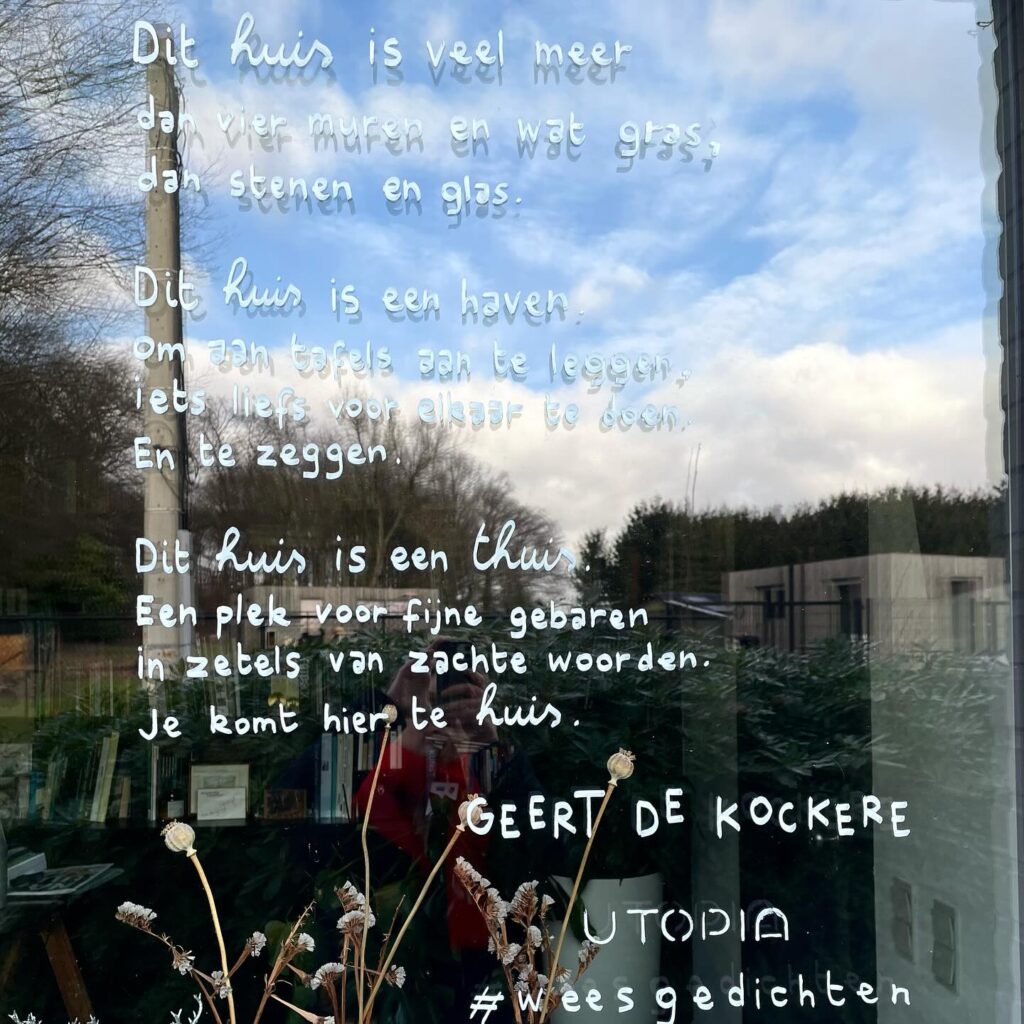 Dit huis is veel meer
dan vier muren en wat gras,
dan stenen en glas.
Dit huis is een haven.
Om aan tafels aan te leggen,
iets liefs voor elkaar te doen.
En te zeggen.
Dit huis is een thuis.
Een plek voor fijne gebaren
in zetels van zachte woorden.
Je komt hier te huis.
GEERT DE KOCKERE
UTOPIA
#weesgedichten